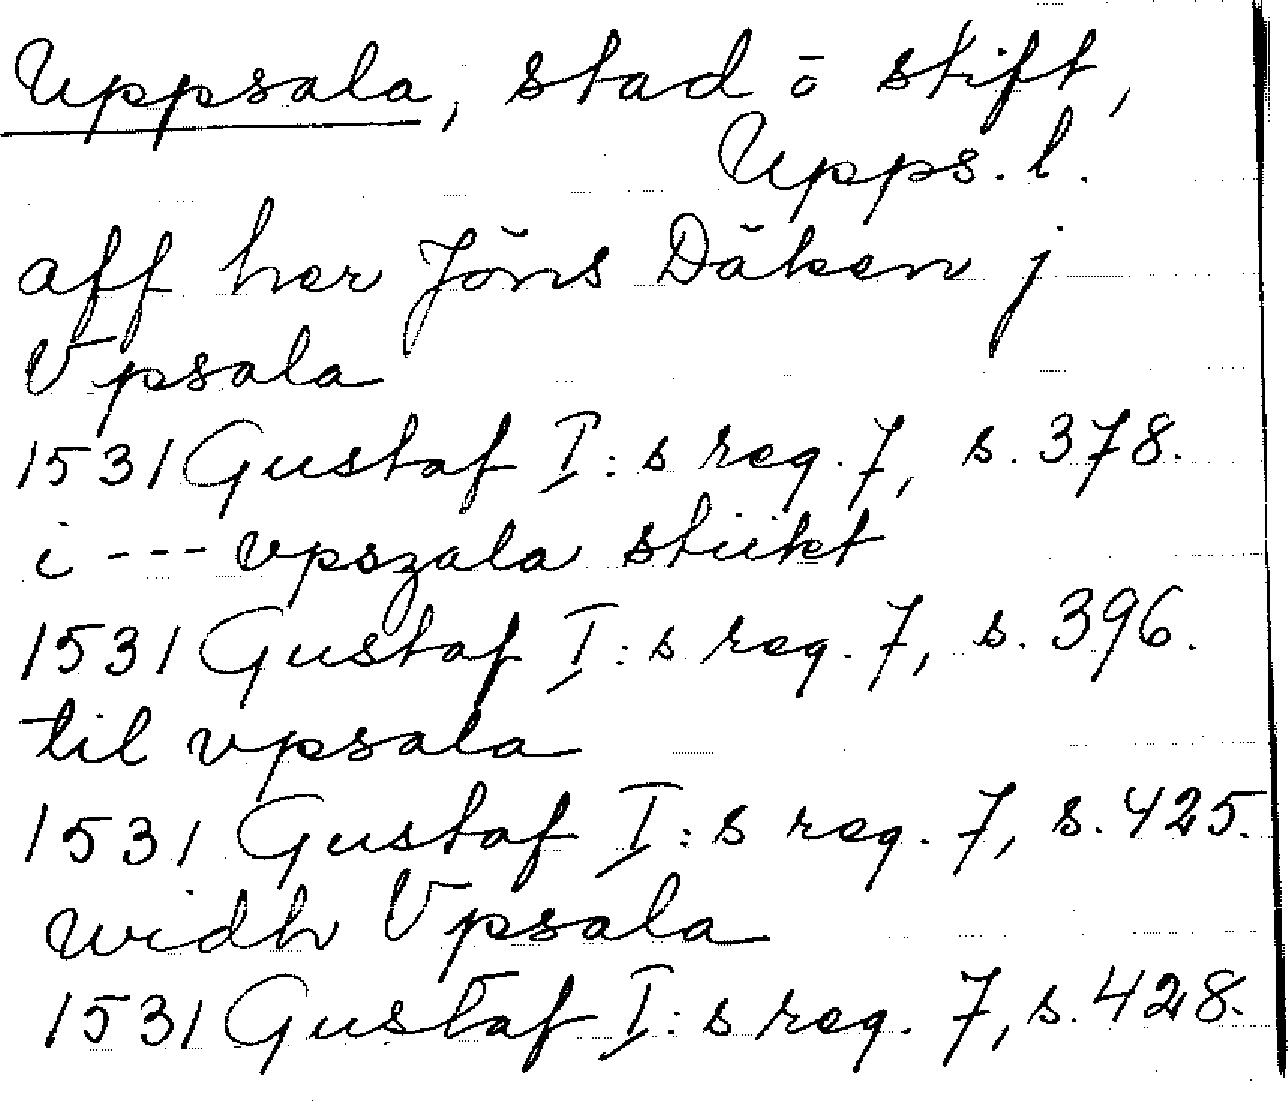 Uppsala, stad o stift,
Upps. l.
aff her Jöns Däken j
Vpsala
1531 Gustaf I:s reg. 7, s. 378.
i --- vpszala stiikt
1531 Gustaf I:s reg. 7, s. 396.
til vpsala
1531 Gustaf I:s reg. 7, s. 425.
widh Vpsala
1531 Gustaf I:s reg. 7, s. 428.